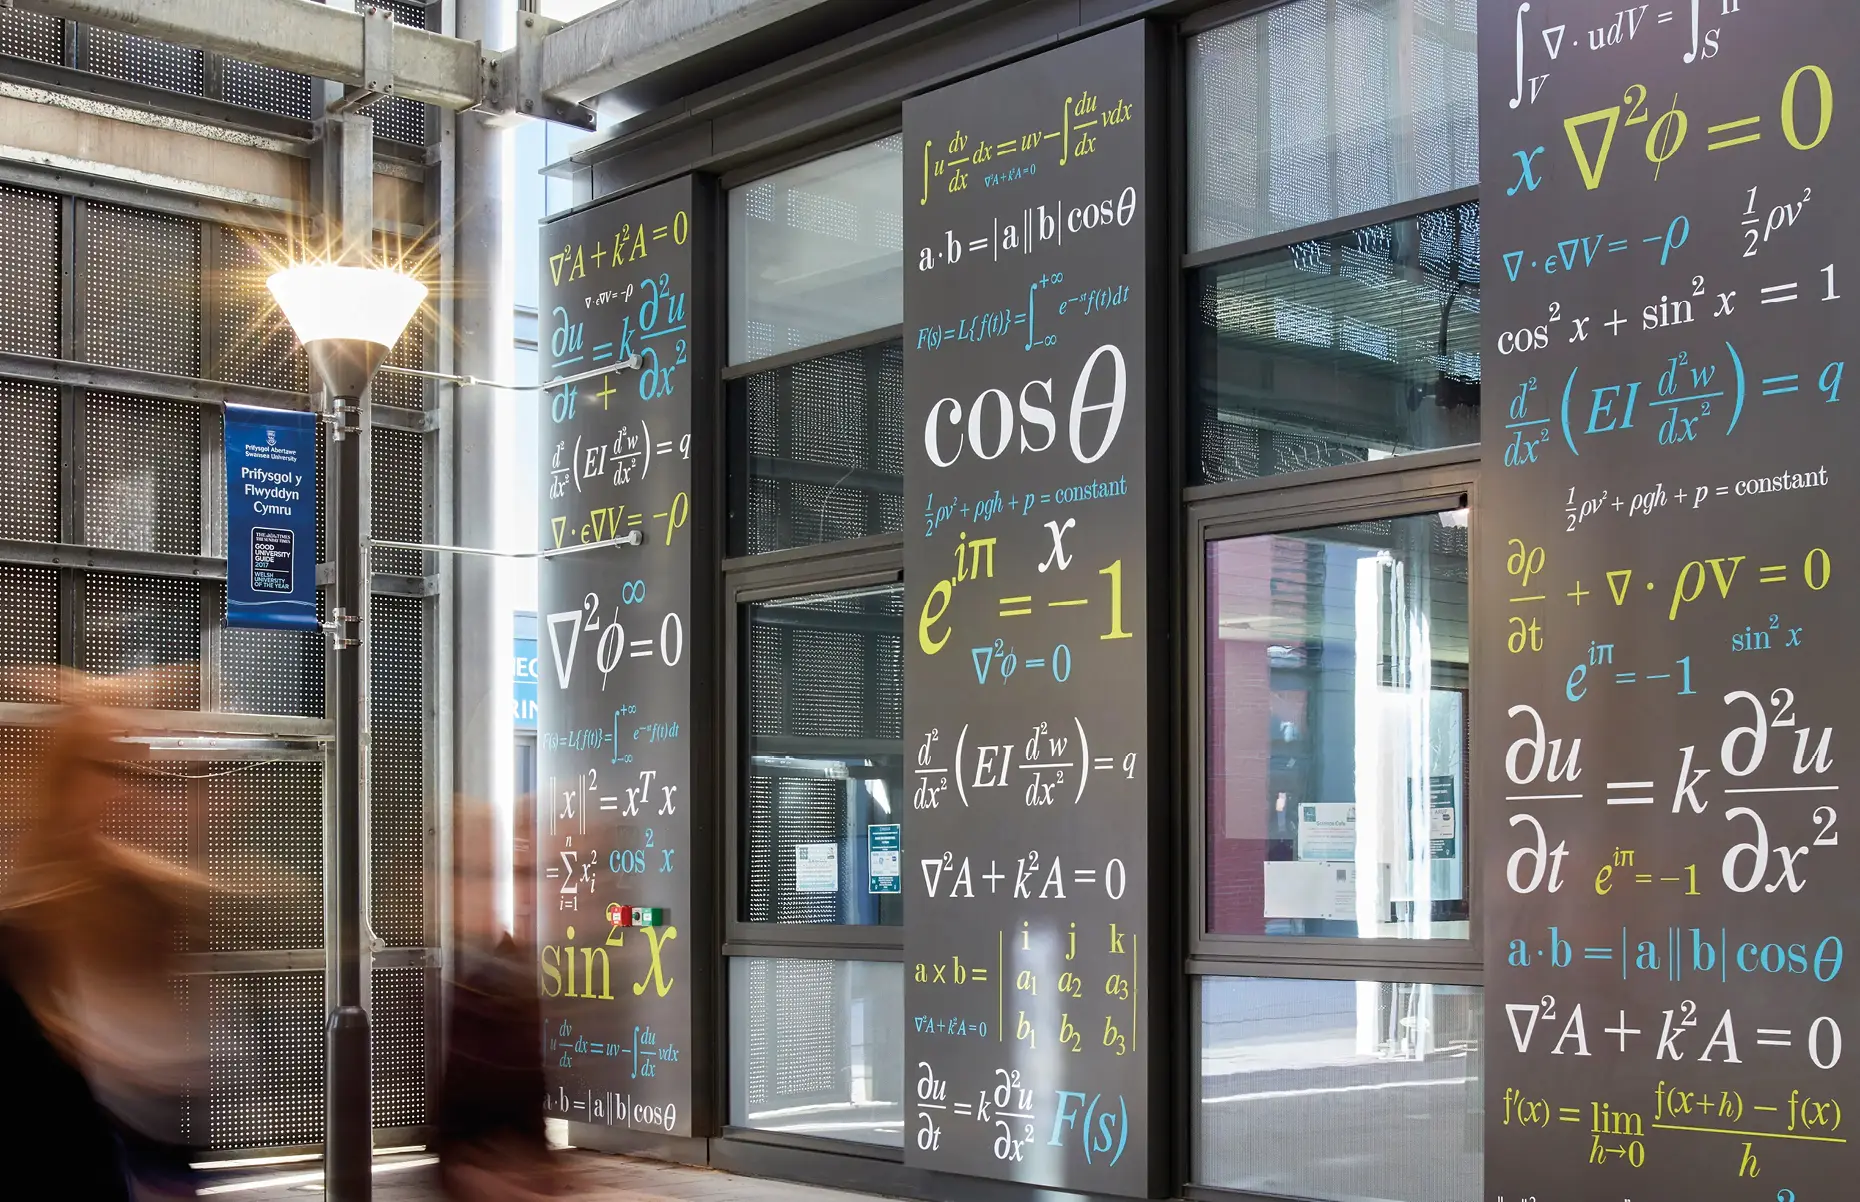 Prifysgol Abertawe
Swansea University
Prifysgol y
Flwyddyn
Cymru
THE TIMES
THE SUNDAY TIMES
GOOD
UNIVERSITY
GUIDE
2017
WELSH
UNIVERSITY
OF THE YEAR
∇²A + k²A = 0
∇·ϵ∇V = −ρ
∂u/∂t = k ∂²u/∂x²
+
d²/dx² (EI d²w/dx²) = q
∇·ϵ∇V = −ρ
∞
∇²ϕ = 0
F(s) = L{f(t)} = ∫_{−∞}^{+∞} e^{−st} f(t) dt
‖x‖² = xᵀx
= ∑_{i=1}^{n} x_i²
cos² x
sin² x
∫ u dv/dx dx = uv − ∫ du/dx v dx
a·b = |a||b| cos θ
∫ u dv/dx dx = uv − ∫ du/dx v dx
∇²A + k²A = 0
a·b = |a||b| cos θ
F(s) = L{f(t)} = ∫_{−∞}^{+∞} e^{−st} f(t) dt
cos θ
½ρv² + ρgh + p = constant
x
e^{iπ} = −1
∇²ϕ = 0
d²/dx² (EI d²w/dx²) = q
∇²A + k²A = 0
a × b = | i j k
a₁ a₂ a₃
b₁ b₂ b₃ |
∇²A + k²A = 0
∂u/∂t = k ∂²u/∂x²
F(s)
∫_V ∇·u dV = ∫_S
x
∇²ϕ = 0
∇·ϵ∇V = −ρ
½ρv²
cos² x + sin² x = 1
d²/dx² (EI d²w/dx²) = q
½ρv² + ρgh + p = constant
∂ρ/∂t + ∇·ρv = 0
e^{iπ} = −1
sin² x
∂u/∂t = k ∂²u/∂x²
e^{iπ} = −1
a·b = |a||b| cos θ
∇²A + k²A = 0
f'(x) = lim_{h→0} (f(x+h) − f(x))/h